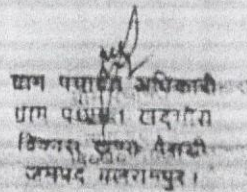 ग्राम पंचायत अधिकारी
ग्राम पंचायत
विकास खण्ड
जनपद बलरामपुर।